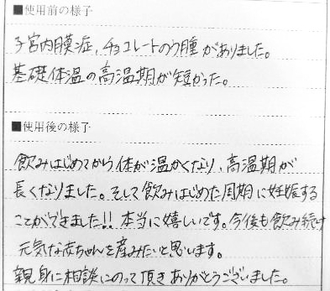 ■使用前の様子
子宮内膜症、チョコレートのう腫がありました。
基礎体温の高温期が短かった。
■使用後の様子
飲みはじめてから体が温かくなり、高温期が
長くなりました。そして飲みはじめた周期に妊娠する
ことができました!! 本当に嬉しいです。今後も飲み続け
元気な赤ちゃんを産みたいと思います。
親身に相談にのって頂きありがとうございました。